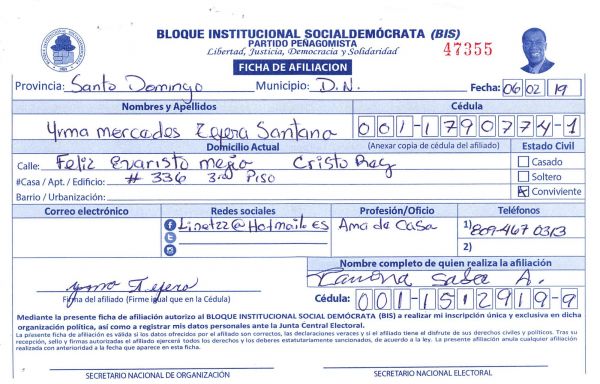 BLOQUE INSTITUCIONAL SOCIALDEMÓCRATA (BIS)
PARTIDO PEÑAGOMISTA
Libertad, Justicia, Democracia y Solidaridad
47355
FICHA DE AFILIACION
Provincia: Santo Domingo Municipio: D.N. Fecha: 06 02 19
Nombres y Apellidos Cédula
Yrma mercedes Tejera Santana 001-1790774-1
(Anexar copia de la cédula del afiliado)
Domicilio Actual Estado Civil
Calle: Feliz Evaristo mejia Cristo Rey
Casado
#Casa / Apt. / Edificio: # 336 3rd Piso
Soltero
Barrio / Urbanización:
Conviviente
Correo electrónico Redes sociales Profesión/Oficio Teléfonos
Linet22@Hotmail.es Ama de Casa 1) 809-467 0313
2)
Nombre completo de quien realiza la afiliación
Yrma Tejera
Firma del afiliado (Firme igual que en la Cédula)
A.
Cédula: 001-1512919-9
Mediante la presente ficha de afiliación autorizo al BLOQUE INSTITUCIONAL SOCIAL DEMÓCRATA (BIS) a realizar mi inscripción única y exclusiva en dicha
organización política, así como a registrar mis datos personales ante la Junta Central Electoral.
La presente ficha de afiliación es válida si los datos ofrecidos por el afiliado son correctos, las declaraciones veraces y si el afiliado tiene el disfrute de sus derechos civiles y políticos. Tras su
recepción, sello y firmas autorizadas el afiliado ejercerá todos los derechos y los deberes estatutariamente sancionados, de acuerdo a la ley. La presente afiliación anula cualquier afiliación
realizada con anterioridad a la fecha que aparece en esta ficha.
SECRETARIO NACIONAL DE ORGANIZACIÓN SECRETARIO NACIONAL ELECTORAL